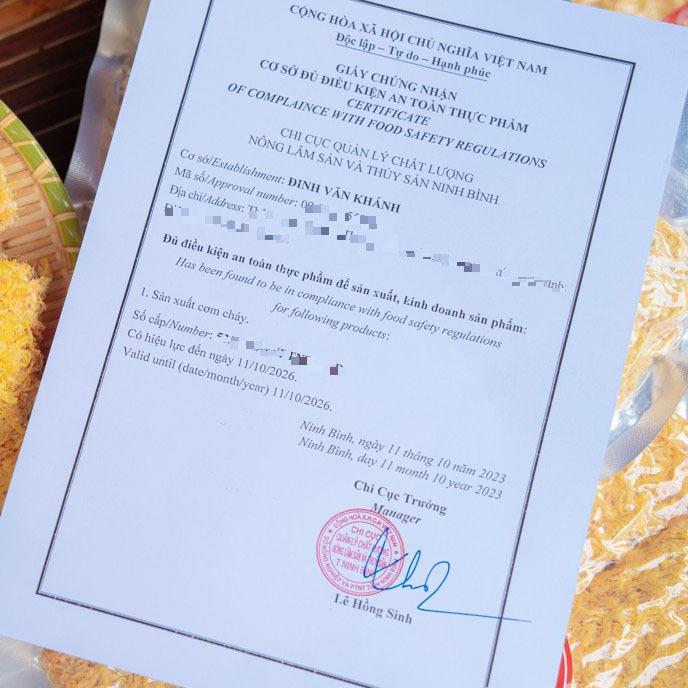 CỘNG HÒA XÃ HỘI CHỦ NGHĨA VIỆT NAM
Độc lập – Tự do – Hạnh phúc
GIẤY CHỨNG NHẬN
CƠ SỞ ĐỦ ĐIỀU KIỆN AN TOÀN THỰC PHẨM
CERTIFICATE
OF COMPLAINCE WITH FOOD SAFETY REGULATIONS
CHI CỤC QUẢN LÝ CHẤT LƯỢNG
NÔNG LÂM SẢN VÀ THỦY SẢN NINH BÌNH
Cơ sở/Establishment: ĐINH VĂN KHÁNH
Mã số/Approval number:
Địa chỉ/Address:
Đủ điều kiện an toàn thực phẩm để sản xuất, kinh doanh sản phẩm:
Has been found to be in compliance with food safety regulations
for following products:
1. Sản xuất cơm cháy.
Số cấp/Number:
Có hiệu lực đến ngày 11/10/2026.
Valid until (date/month/year) 11/10/2026.
Ninh Bình, ngày 11 tháng 10 năm 2023
Ninh Bình, day 11 month 10 year 2023
Chi Cục Trưởng
Manager
CHI CỤC
QUẢN LÝ CHẤT LƯỢNG
NÔNG LÂM SẢN
T. NINH BÌNH
Lê Hồng Sinh